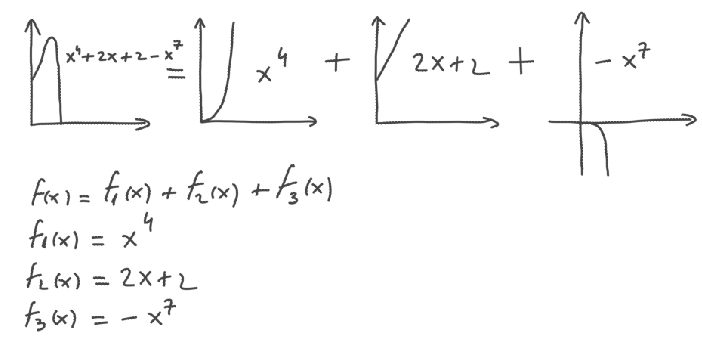 x⁴+2x+2-x⁷ = x⁴ + 2x+2 + -x⁷
f(x) = f₁(x) + f₂(x) + f₃(x)
f₁(x) = x⁴
f₂(x) = 2x+2
f₃(x) = -x⁷